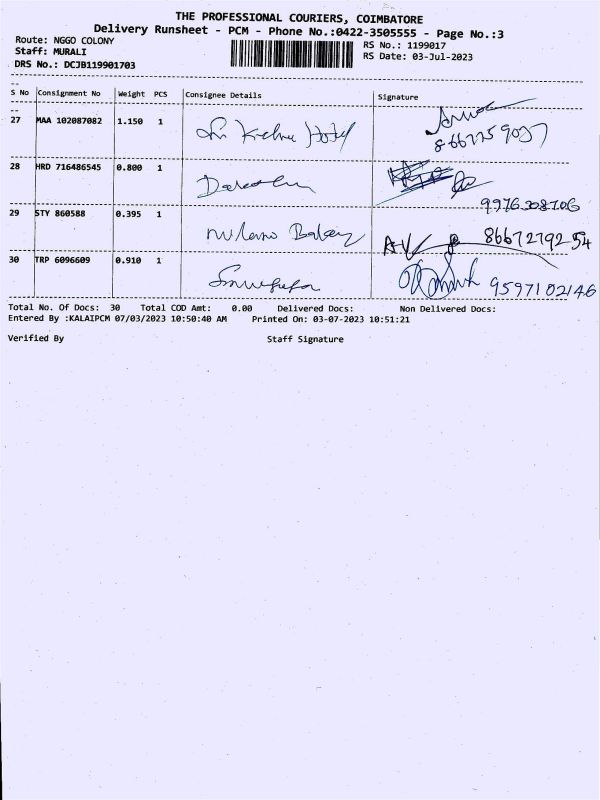 THE PROFESSIONAL COURIERS, COIMBATORE
Delivery Runsheet - PCM - Phone No.:0422-3505555 - Page No.:3
Route: NGGO COLONY RS No.: 1199017
Staff: MURALI RS Date: 03-Jul-2023
DRS No.: DCJB119901703
S No Consignment No Weight PCS Consignee Details Signature
27 MAA 102087082 1.150 1 Hotel
28 HRD 716486545 0.800 1
9976308706
29 STY 860588 0.395 1 Milano Bakery 8667279254
30 TRP 6096609 0.910 1 9597102146
Total No. Of Docs: 30 Total COD Amt: 0.00 Delivered Docs: Non Delivered Docs:
Entered By :KALAIPCM 07/03/2023 10:50:40 AM Printed On: 03-07-2023 10:51:21
Verified By Staff Signature